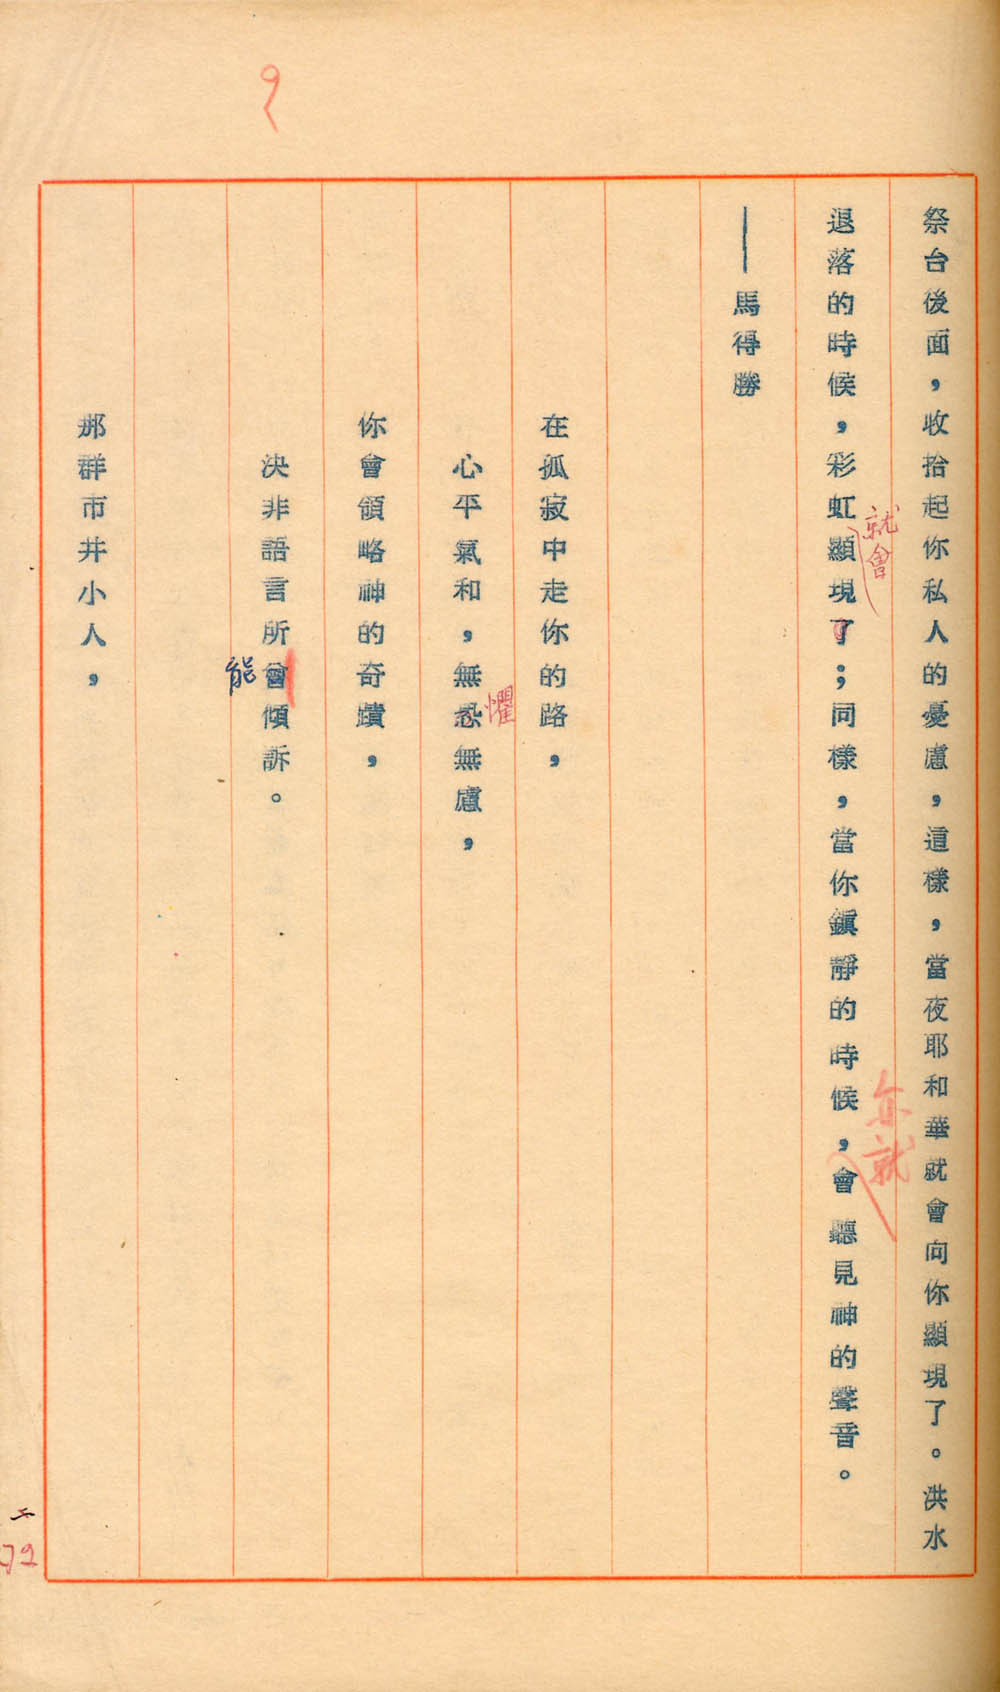 祭台後面，收拾起你私人的憂慮，這樣，當夜耶和華就會向你顯現了。洪水
就會
退落的時候，彩虹顯現了；同樣，當你鎮靜的時候，會聽見神的聲音。
亦就
——馬得勝
在孤寂中走你的路，
懼
心平氣和，無恐無慮，
你會領略神的奇蹟，
決非語言所會傾訴。
能
那群市井小人，
72